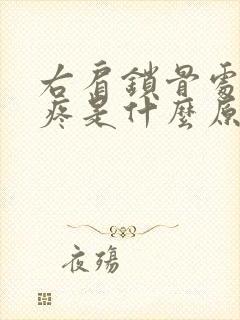 右肩鎖骨處
疼是什麼原
夜殤